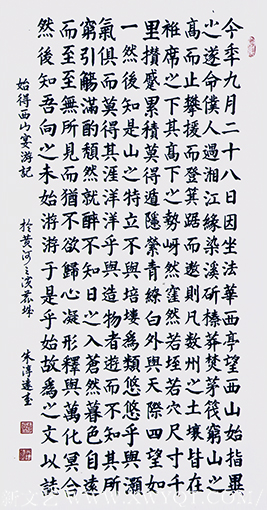 今季九月二十八日因坐法華西亭望西山始指異
之遂命僕人過湘江緣染溪斫榛莽焚茅筏窮山之
高而止攀援而登箕踞而遨則凡數州之土壤皆在
袵席之下其高下之勢岈然窪然若垤若穴尺寸千
里攢蹙累積莫得遁隱縈青繚白外與天際四望如
一然後知是山之特立不與培塿為類悠悠乎與灝
氣俱而莫得其涯洋洋乎與造物者遊而不知其所
窮引觴滿酌頹然就醉不知日之入蒼然暮色自遠
而至至無所見而猶不欲歸心凝形釋與萬化冥合
然後知吾向之未始游游于是乎始故為之文以誌
始得西山宴游記 於黃河之濱 朱淳遠書